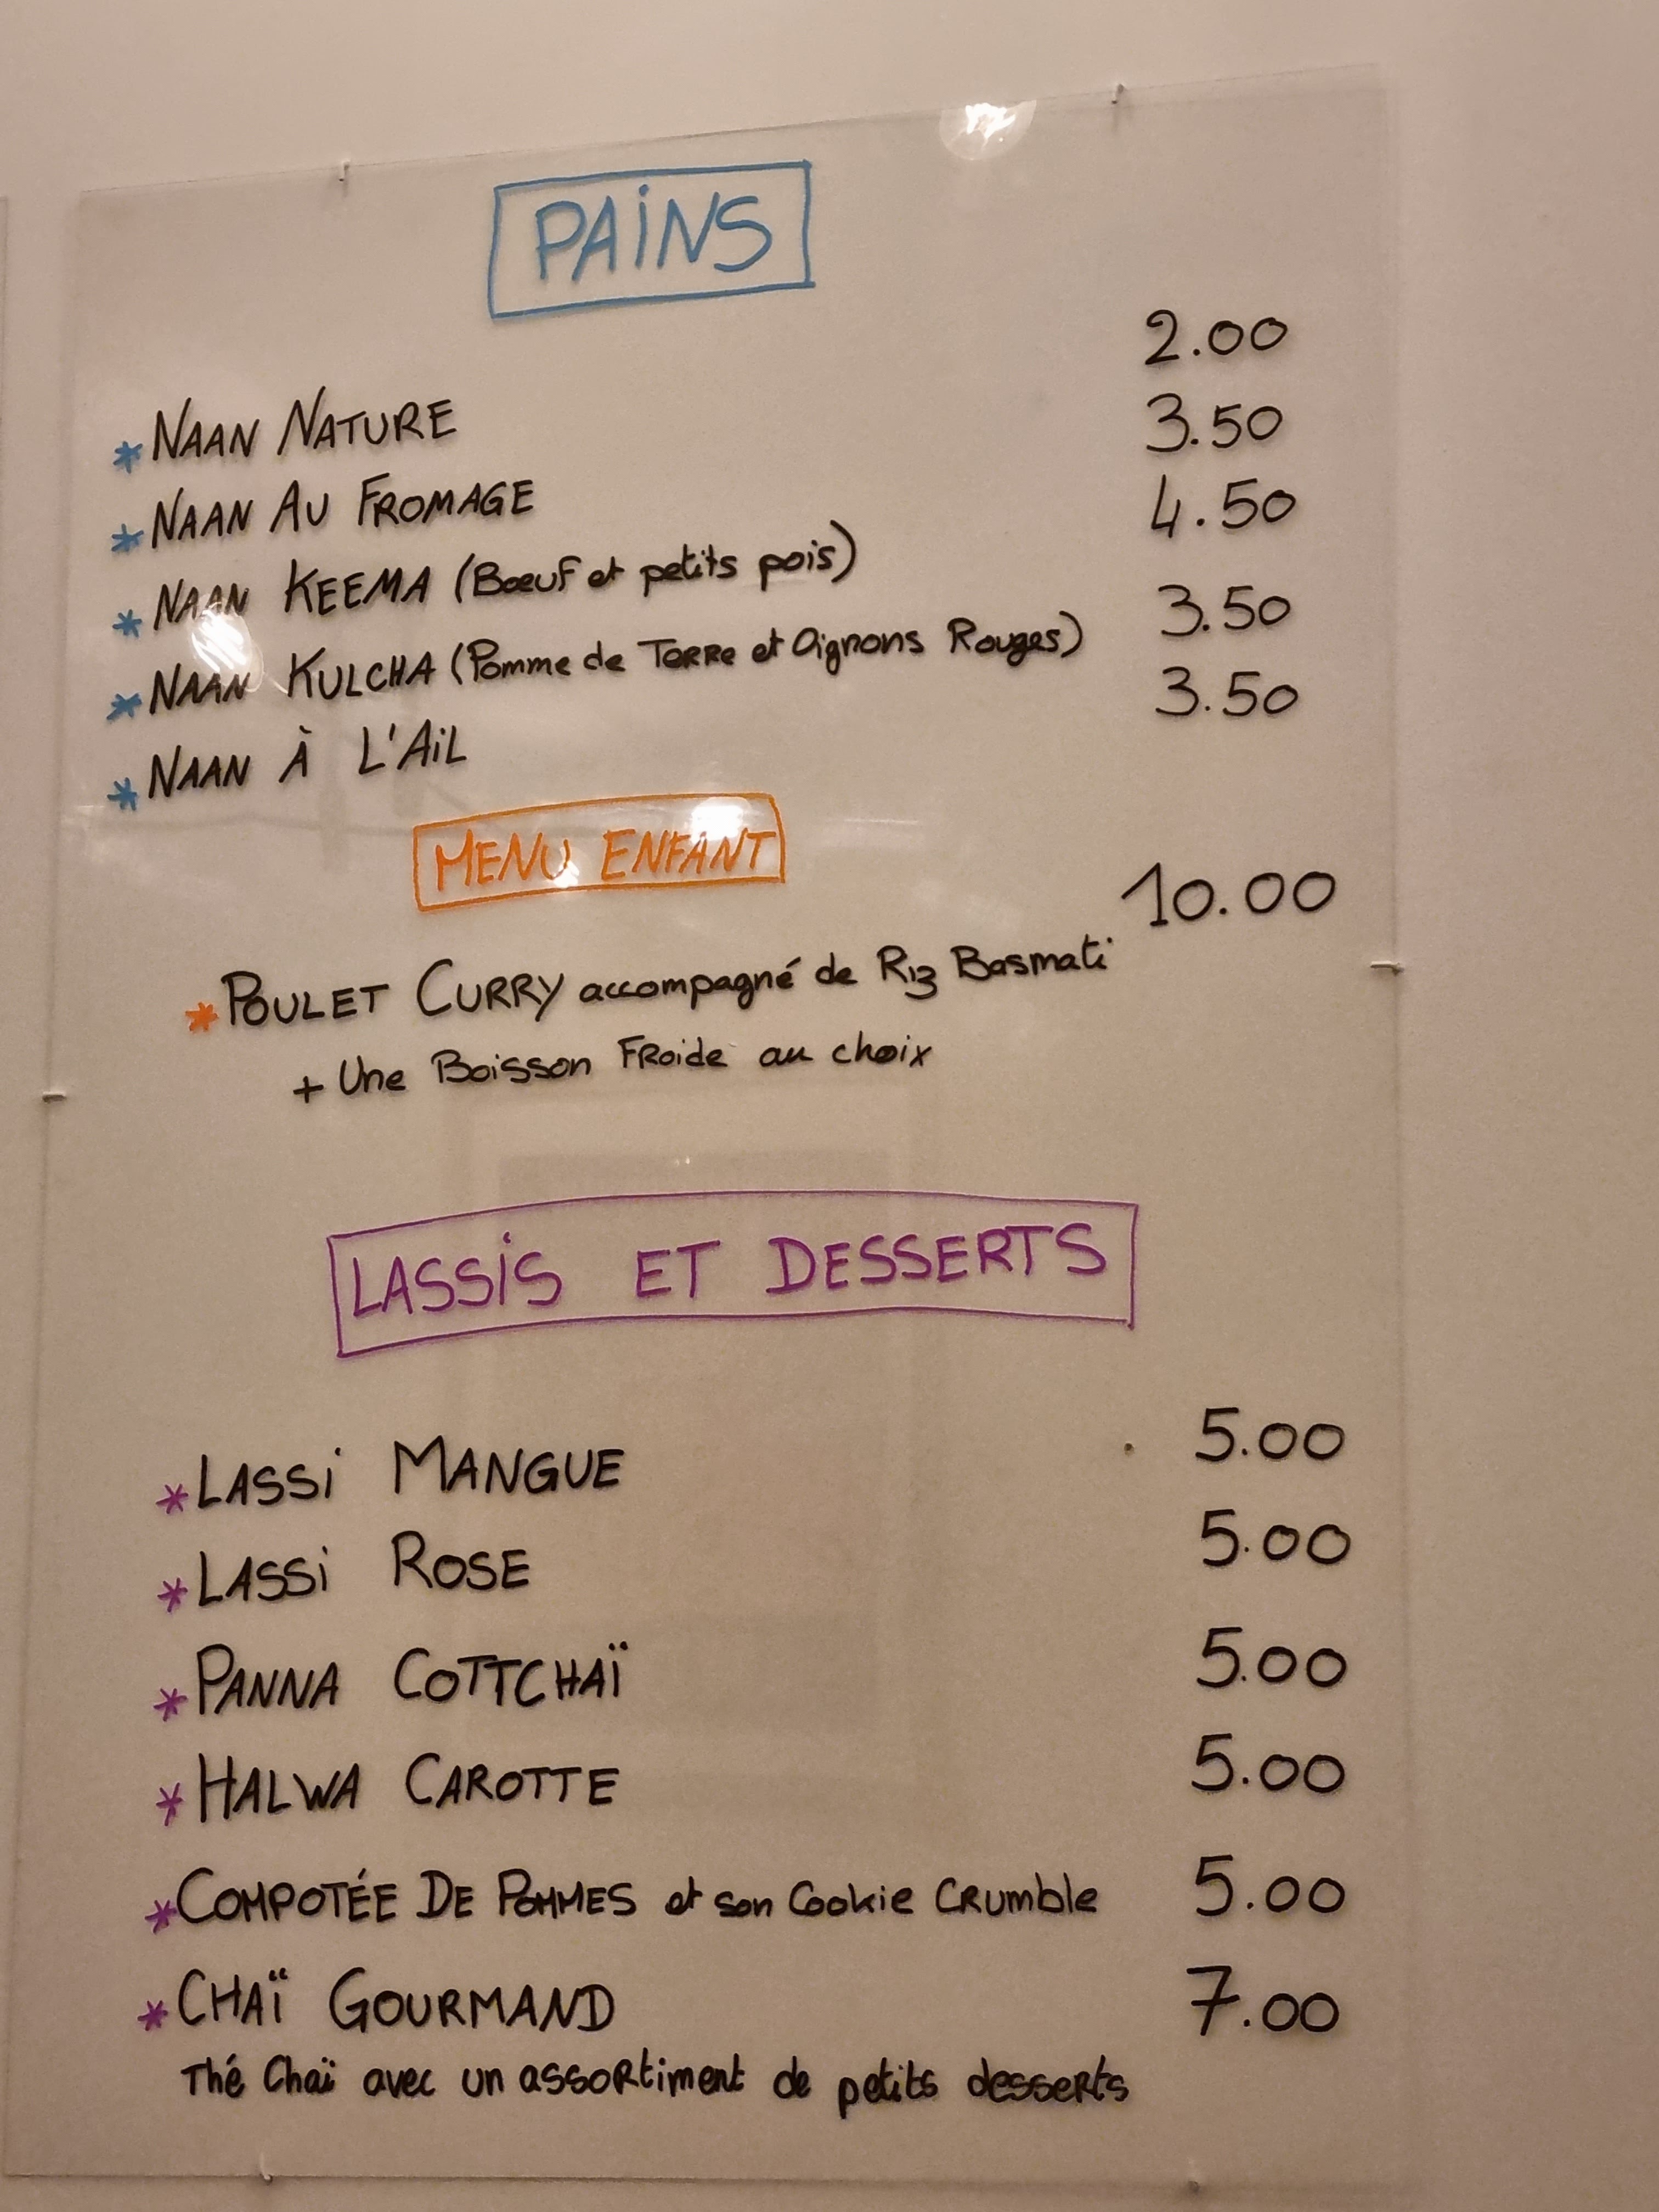 PAINS
* NAAN NATURE 2.00
* NAAN AU FROMAGE 3.50
* NAAN KEEMA (Bœuf et petits pois) 4.50
* NAAN KULCHA (Pomme de Terre et Oignons Rouges) 3.50
* NAAN À L'AIL 3.50
MENU ENFANT
* POULET CURRY accompagné de Riz Basmati 10.00
+ Une Boisson Froide au choix
LASSIS ET DESSERTS
* LASSI MANGUE 5.00
* LASSI ROSE 5.00
* PANNA COTTCHAÏ 5.00
* HALWA CAROTTE 5.00
* COMPOTÉE DE POMMES et son Cookie Crumble 5.00
* CHAÏ GOURMAND 7.00
Thé Chaï avec un assortiment de petits desserts